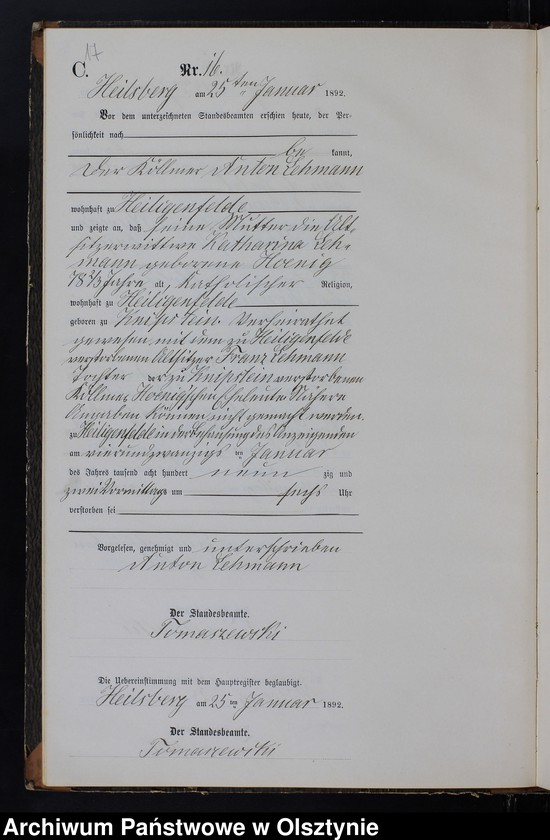 17
C.
Nr. 16.
Heilsberg am 25ten Januar 1892.
Vor dem unterzeichneten Standesbeamten erschien heute, der Per-
sönlichkeit nach
be kannt,
der Köllmer Anton Lehmann
wohnhaft zu Heiligenfelde
und zeigte an, daß seine Mutter die Alt-
sitzerwittwe Katharina Leh-
mann geborene Hoenig
78 2/3 Jahre alt, katholischer Religion,
wohnhaft zu Heiligenfelde
geboren zu Knipstein. Verheirathet
gewesen mit dem zu Heiligenfelde
verstorbenen Altsitzer Franz Lehmann
Tochter der zu Knipstein verstorbenen
Köllmer Hoenig'schen Eheleute Nähere
Angaben können nicht gemacht werden.
zu Heiligenfelde in der Behausung des Anzeigenden
am vierundzwanzigsten Januar
des Jahres tausend acht hundert neun zig und
zwei Vormittags um sechs Uhr
verstorben sei
Vorgelesen, genehmigt und unterschrieben
Anton Lehmann
Der Standesbeamte.
Tomaszewski
Die Uebereinstimmung mit dem Hauptregister beglaubigt.
Heilsberg am 25ten Januar 1892.
Der Standesbeamte.
Tomaszewski
Archiwum Państwowe w Olsztynie